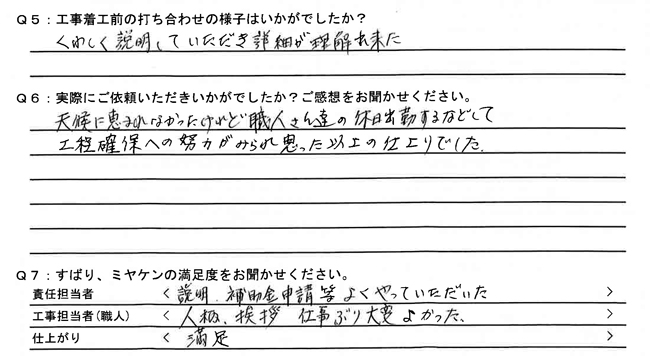 Q5：工事着工前の打ち合わせの様子はいかがでしたか？
くわしく説明していただき詳細が理解出来た
Q6：実際にご依頼いただきいかがでしたか？ご感想をお聞かせください。
天候に恵まれなかったけれど職人さん達の休日出勤するなどして
工程確保への努力がみられ思った以上の仕上りでした.
Q7：すばり、ミヤケンの満足度をお聞かせください。
責任担当者 < 説明、補助金申請等よくやっていただいた >
工事担当者(職人) < 人柄、挨拶 仕事ぶり大変よかった、 >
仕上がり < 満足 >